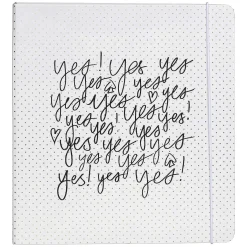 yes! yes yes
yes yes yes
yes yes yes
yes! yes
yes yes yes
yes yes yes
yes! yes yes!